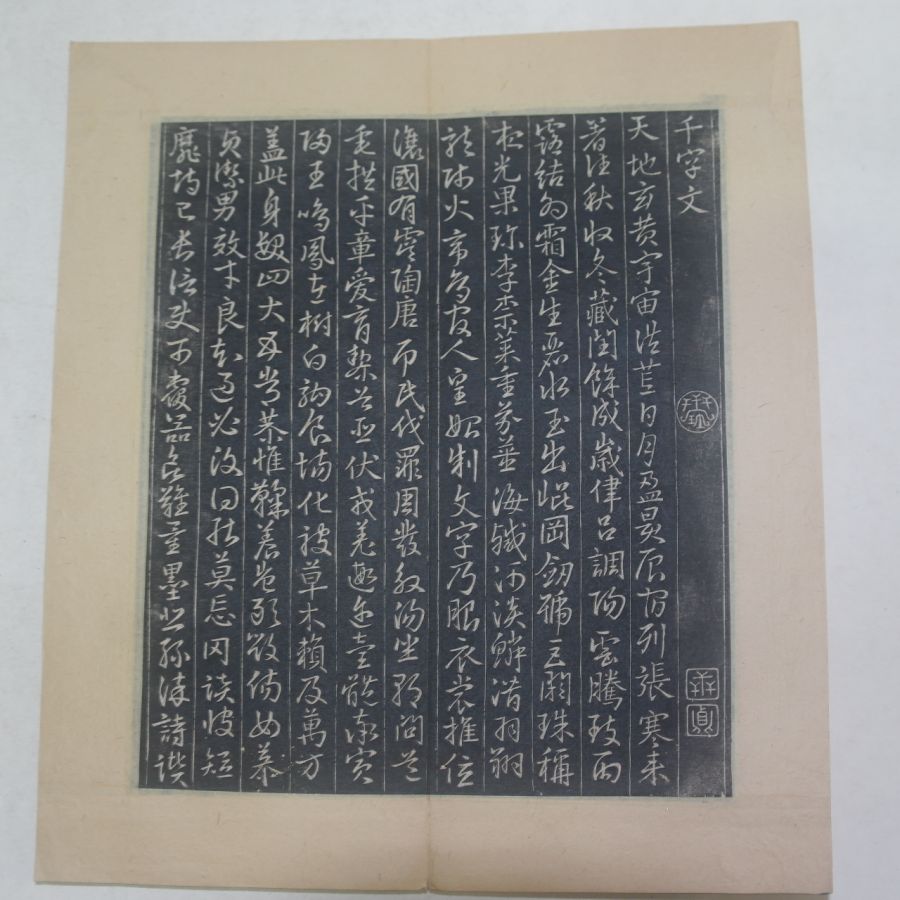 千字文
天地玄黄宇宙洪荒日月盈昃辰宿列張寒来
暑往秋收冬藏閏餘成歲律呂調陽雲騰致雨
露結為霜金生麗水玉出崐岡劒號巨闕珠稱
夜光果珎李柰菜重芥薑海鹹河淡鱗潛羽翔
龍師火帝鳥官人皇始制文字乃服衣裳推位
讓國有虞陶唐吊民伐罪周發殷湯坐朝問道
垂拱平章愛育黎首臣伏戎羌遐迩壹體率賓
歸王鳴鳳在樹白駒食場化被草木賴及萬方
蓋此身髮四大五常恭惟鞠養豈敢毀傷女慕
貞潔男效才良知過必改得能莫忘罔談彼短
靡恃己長信使可覆器欲難量墨悲絲染詩讃